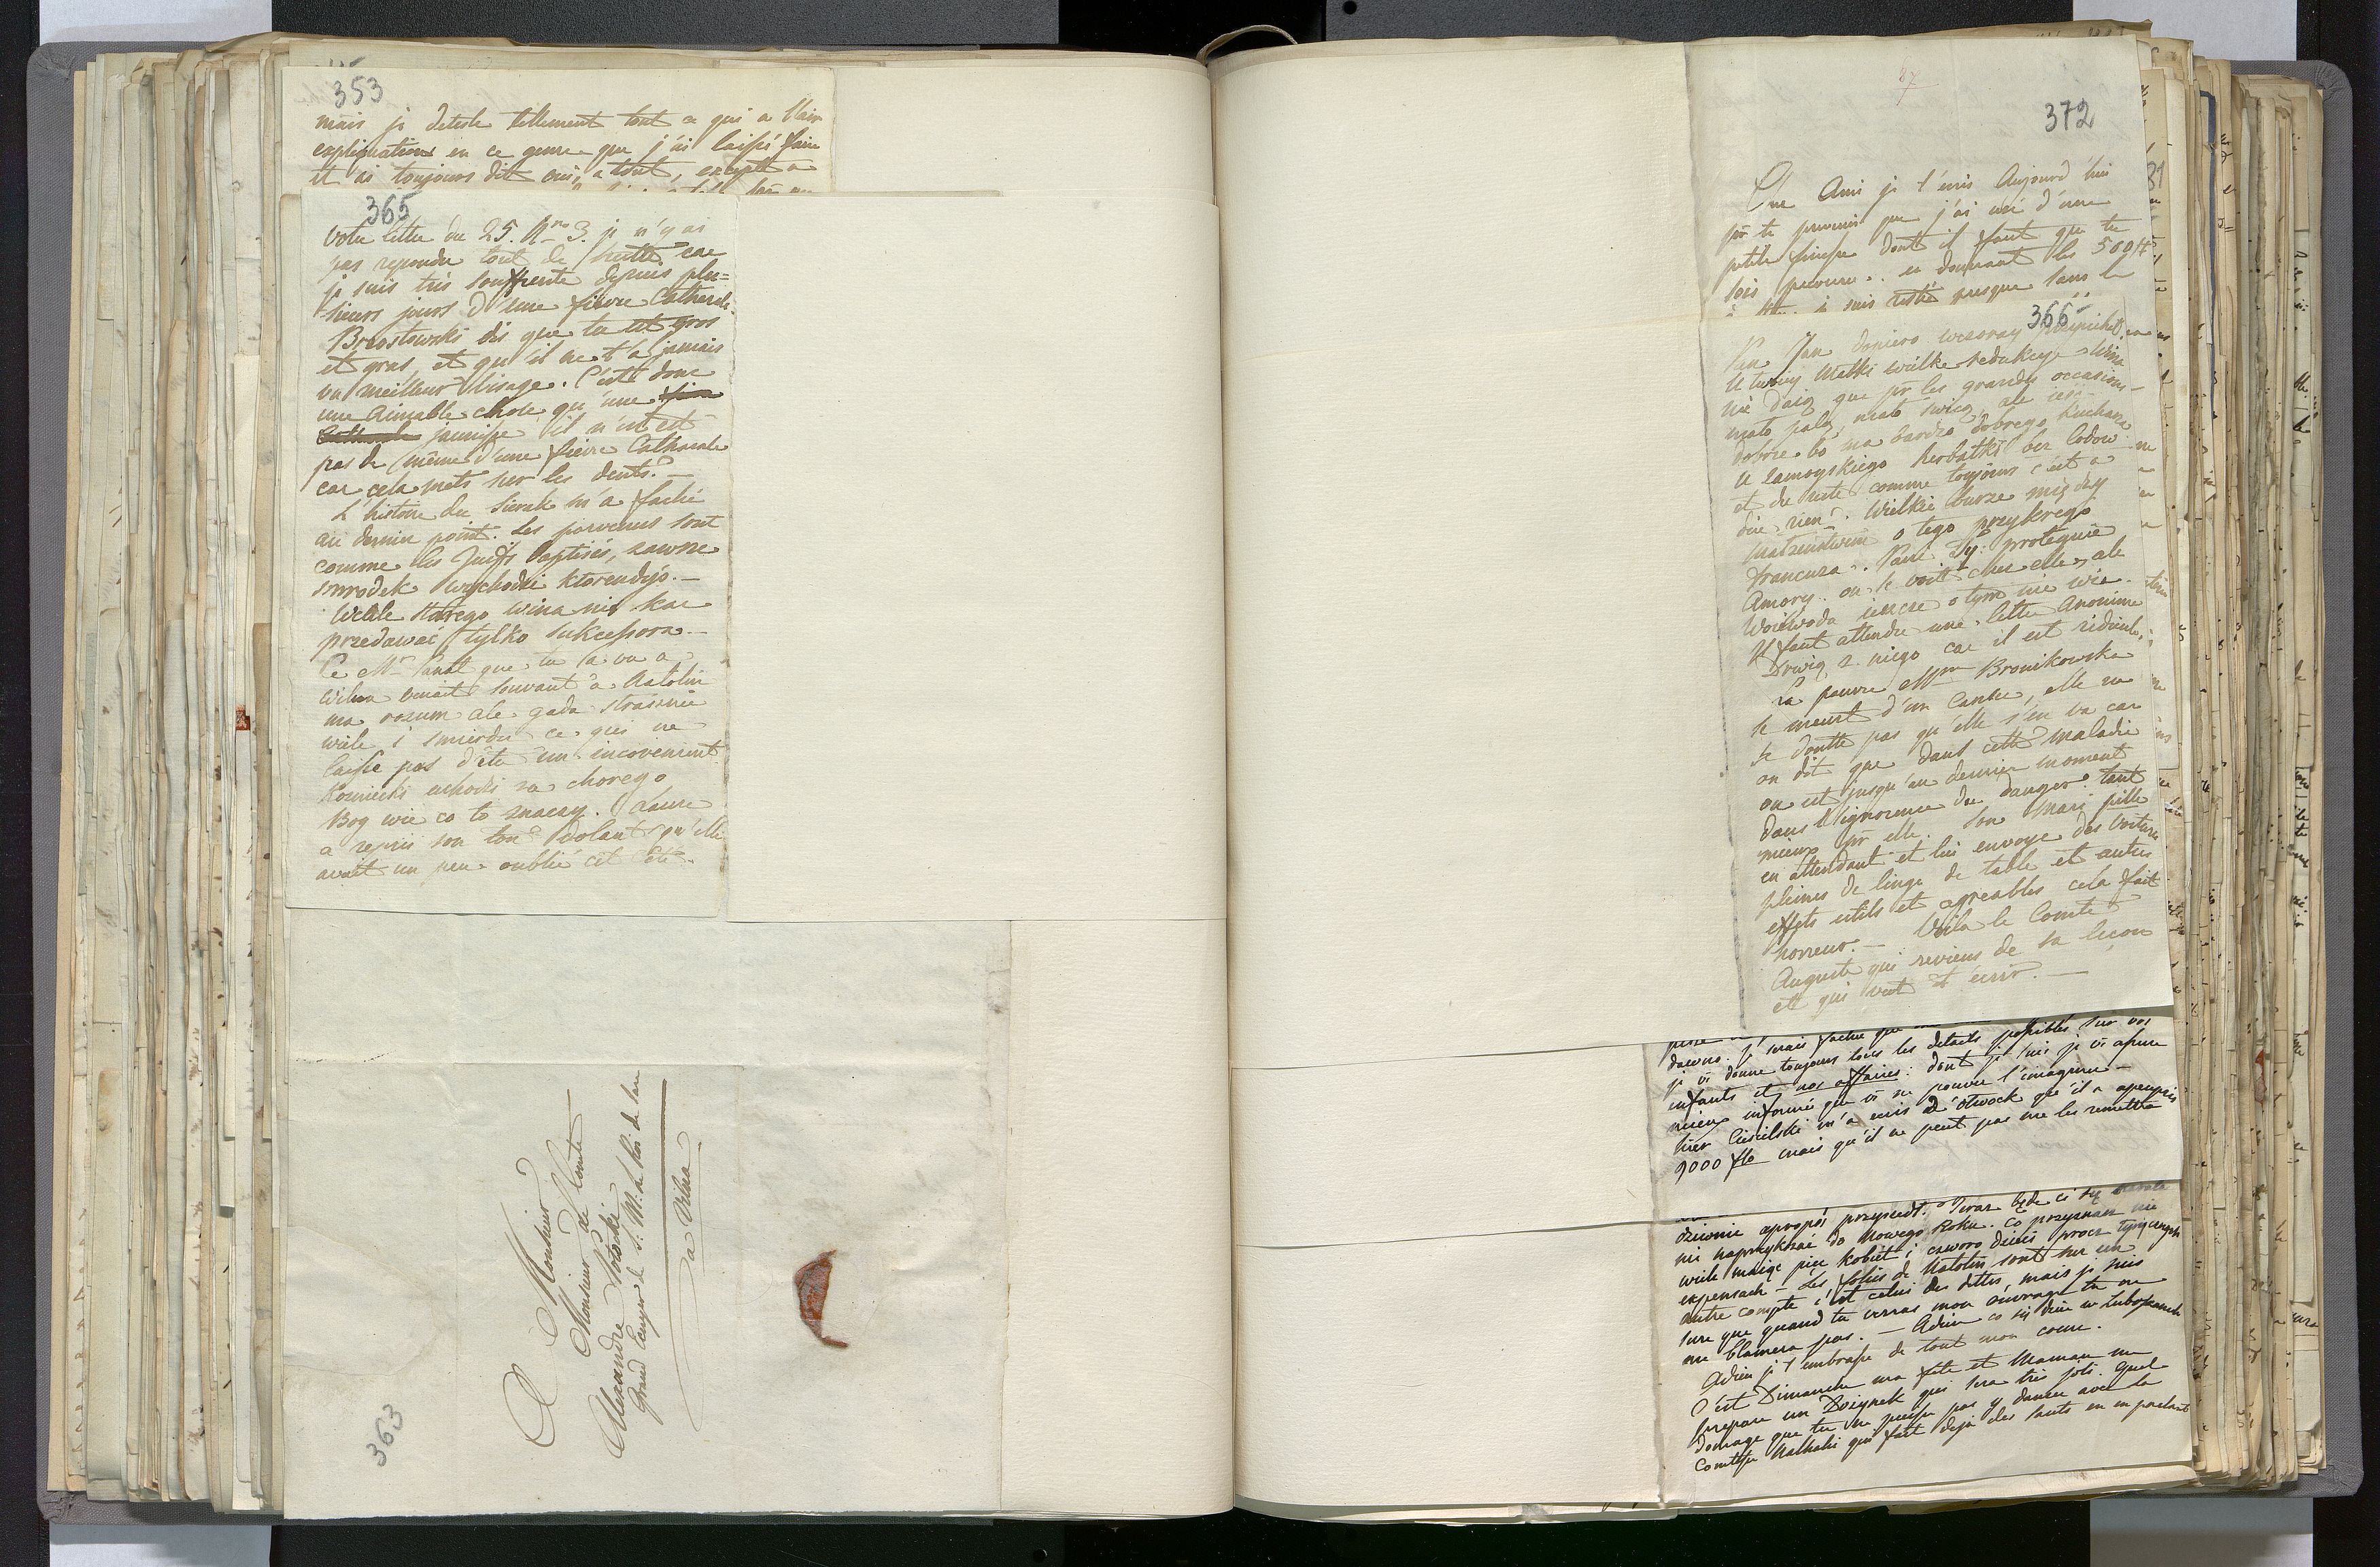 353
mais je deteste tellement tout ce qui a l'air
explications en ce genre que j'ai laissé faire
et ai toujours dit oui, a tout, excepté a
365
votre lettre du 25. Nro 3. je n'y ai
pas repondu tout de suitte car
je suis très souffrente depuis plu=
sieurs jours d'une fièvre Catharale.
Brzostowski dis que tu est gros
et gras, et qu'il ne t'a jamais
vu meilleur visage. C'est donc
une aimable chose qu'une
jaunisse il n'en est
pas de même d'une fièvre Catharale
car cela mets sur les dents. —
L'histoire du Sierak m'a faché
au dernier point. Les parvenus sont
comme les Juifs baptisés, zawsze
smrodek wychodzi ktorendyś. —
Wcale starego wina nie kaz
przedawać tylko sukcessora. —
Ce Mr Sanat que tu a vu a
Wilna venait souvant à Natolin
ma rozum ale gada strasznie
wiele i smierdzi ce qui ne
laisse pas d'être un inconvenient.
Kozniecki uchodzi za chorego
Bog wie co to znaczy. Laure
a repris son ton dolant qu'elle
avait un peu oublié cet Été.
A Monsieur
Monsieur le Comte
Alexandre Potocki
Grand Ecuyer de S. M. le Roi de
a Vilna
363
372
Cher Ami je t'écris Aujourd'hui
pr te prevenir que j'ai usé d'une
petite finesse dont il faut que tu
sois prevenu. en donnant les 500#
je suis resté presque sans le
366
Pan Jan dopiero wczoray
U twoiey Matki wielka redukcya Wina
nie daią que pr les grandes occasions —
mało palą, mało swiec, ale ieść
dobrze bo ma bardzo dobrego Kucharza
U Zamoyskiego herbatki bez lodow
et du reste comme toujours c'est a
dire rien. Wielkie burze między
małzenstwem o tego przykrego
francuza. Pani Zy: proteguie
Amory. on se voit chez elle, ale
Woiewoda ieszcze o tym nie wie.
Il faut attendre une lettre Anonime
Drwią z niego car il est ridicule.
La pauvre Mme Bronikowska
se meurt d'un Cancer, elle ne
se doutte pas qu'elle s'en va car
on dit que dans cette maladie
on est jusqu'au dernier moment
dans l'ignorence du danger. tant
mieux pr elle. Son Mari pille
en attendant et lui envoye des voitures
pleines de linge de table et autres
effets utils et agreables cela fait
horreur. — Voila le Comte
Auguste qui reviens de sa leçon
et qui veut t'écrir. —
je vs donne toujours tous les details possibles sur vos
enfants et nos affaires: dont je suis je vs assure
mieux informé que vs ne pouvez l'imaginer —
hier Ciesielski m'a ecris d'Otwock qu'il a apeuprès
9000 flo mais qu'il ne peut pas me les remettre
dziwnie apropos przyszedł. Teraz będe ci się
nie naprzykrzać do Nowego Roku. Co przyznasz nie
wiele maiąc pięc kobiet i czworo dzieci procz tysiącznych
expensach — Les folies de Natolin sont sur un
autre compte c'est celui des dettes, mais je suis
sure que quand tu verras mon ouvrage tu ne
me blamera pas. — Adieu co się dzieie w Lubopanach
Adieu je t'embrasse de tout mon coeur.
C'est Dimanche ma fête et Maman me
prepare un Dożynek qui sera très joli. Quel
domage que tu ne puisse pas y danser avec la
Comtesse Nathalie qui fait deja des sauts en en parlant